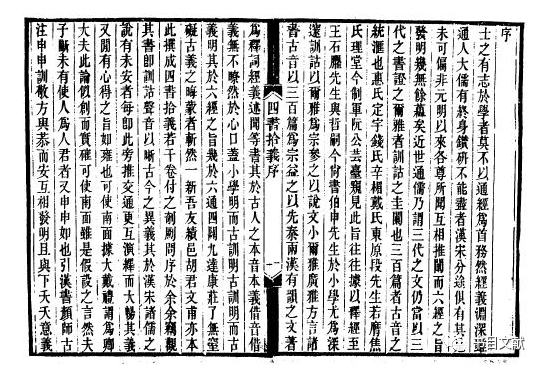 序
士之有志於學者莫不以通經爲首務然經義淵深雖
通人大儒有終身鑽研不能盡者漢宋分途似有其
未可偏非元明以來各尊所聞互相推闡而六經之旨
發明幾無餘蘊矣近世通儒乃謂三代之文仍當以三
代之書證之爾雅者訓詁之圭臬也三百篇者古音之
統滙也惠氏定宇錢氏辛楣戴氏東原段先生若膺焦
氏理堂今制軍阮公芸臺窺見此旨往往據以釋經至
王石臞先生與哲嗣今尚書伯申先生於小學尤爲深
邃訓詁以爾雅爲宗參之以說文小爾雅廣雅方言諸
書古音以三百篇爲宗益之以先秦兩漢有韻之文著
四書拾義序
一
爲釋詞經義述聞等書其於古人之本音本義借音借
義無不瞭然於心口蓋小學明而古訓明古訓明而古
義明其於六經之旨幾於六通四闢九達康莊了無窒
礙古義之晦蒙者斬然一新吾友績邑胡君文甫亦本
此撰成四書拾義若干卷付之剞劂問序於余余竊觀
其書即訓詁聲音以晰古今之異義其於漢宋諸儒之
說有未安者每即此旁推交通更互演釋而大暢其義
又閒有心得之旨如雍也可使南面據大戴禮謂爲卿
大夫此論似創而實確可使南面雖是假設之言然夫
子斷未有使人爲人君者又申申如也引漢書顏師古
注申申訓敬方與恭而安互相發明且與下夭夭意義
目文献